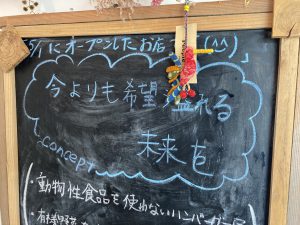 5/1にオープンしたお店 (^^)
今よりも希望溢れる
未来を
concept
・動物性食品を使わないハンバーガー
・有機野菜